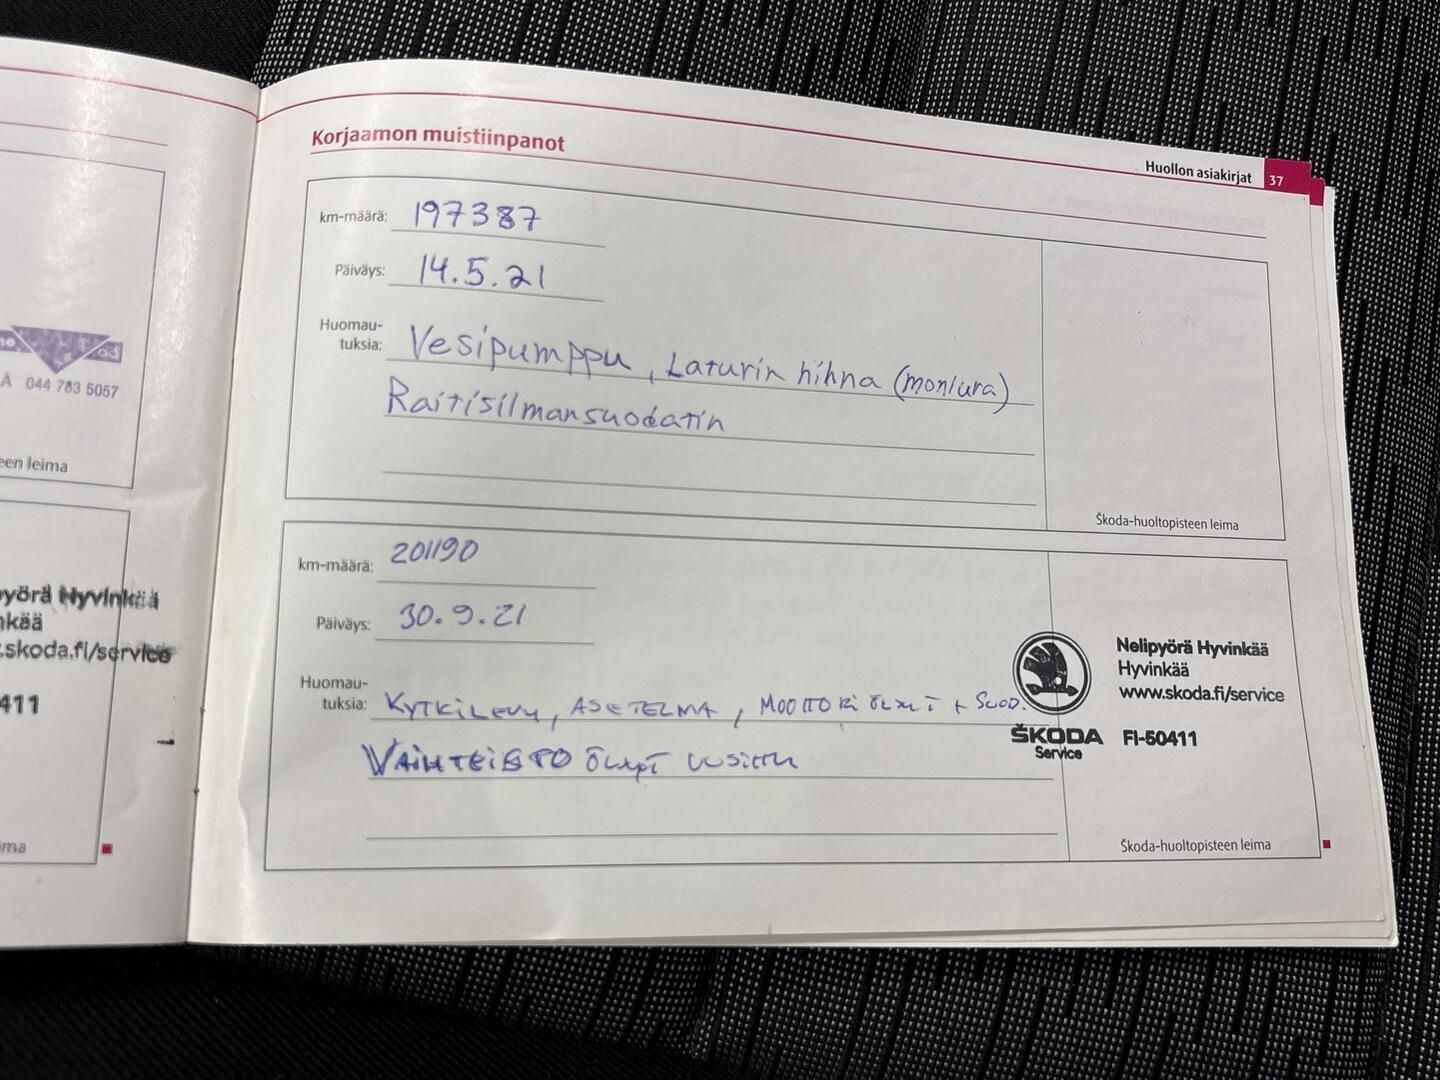 Å 044 783 5057
een leima
yörä Hyvinkää
nkää
.skoda.fi/service
411
ima
Korjaamon muistiinpanot
Huollon asiakirjat 37
km-määrä: 197387
Päiväys: 14.5.21
Huomau-
tuksia: Vesipumppu, Laturin hihna (moniura)
Raitisilmansuodatin
Škoda-huoltopisteen leima
km-määrä: 201190
Päiväys: 30.9.21
Huomau-
tuksia: KYTKILEVY, ASETELMA, MOOTTORIÖLJYT + SUOD.
VAIHTEISTO ÖLJYT UUSITTU
Nelipyörä Hyvinkää
Hyvinkää
www.skoda.fi/service
ŠKODA FI-50411
Service
Škoda-huoltopisteen leima